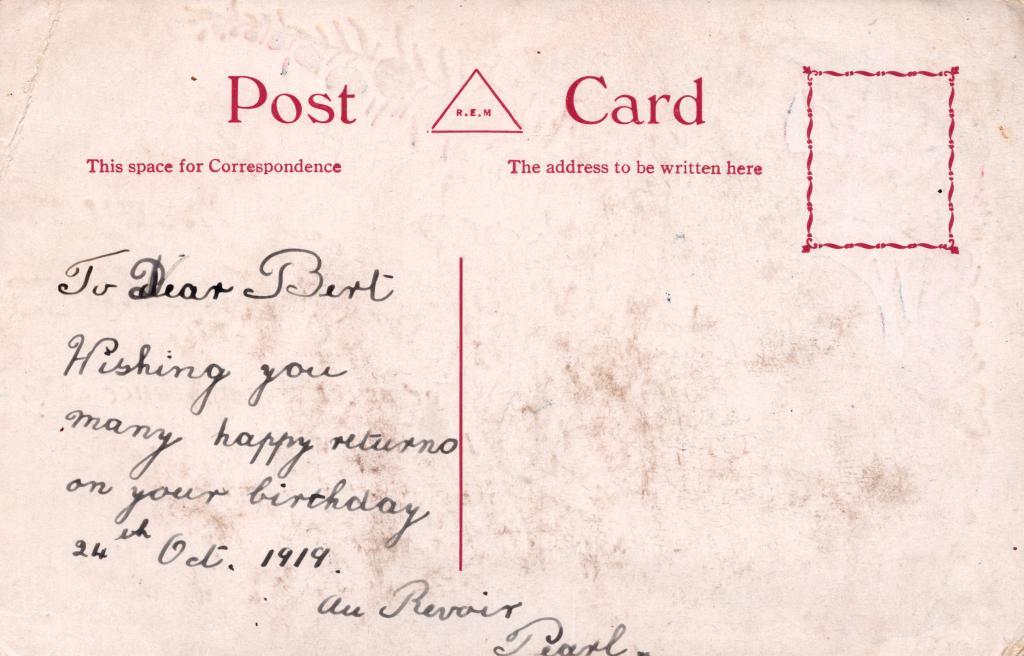 Post R.E.M Card
This space for Correspondence
The address to be written here
To Dear Bert
Wishing you
many happy returns
on your birthday
24th Oct. 1919.
Au Revoir
Pearl.